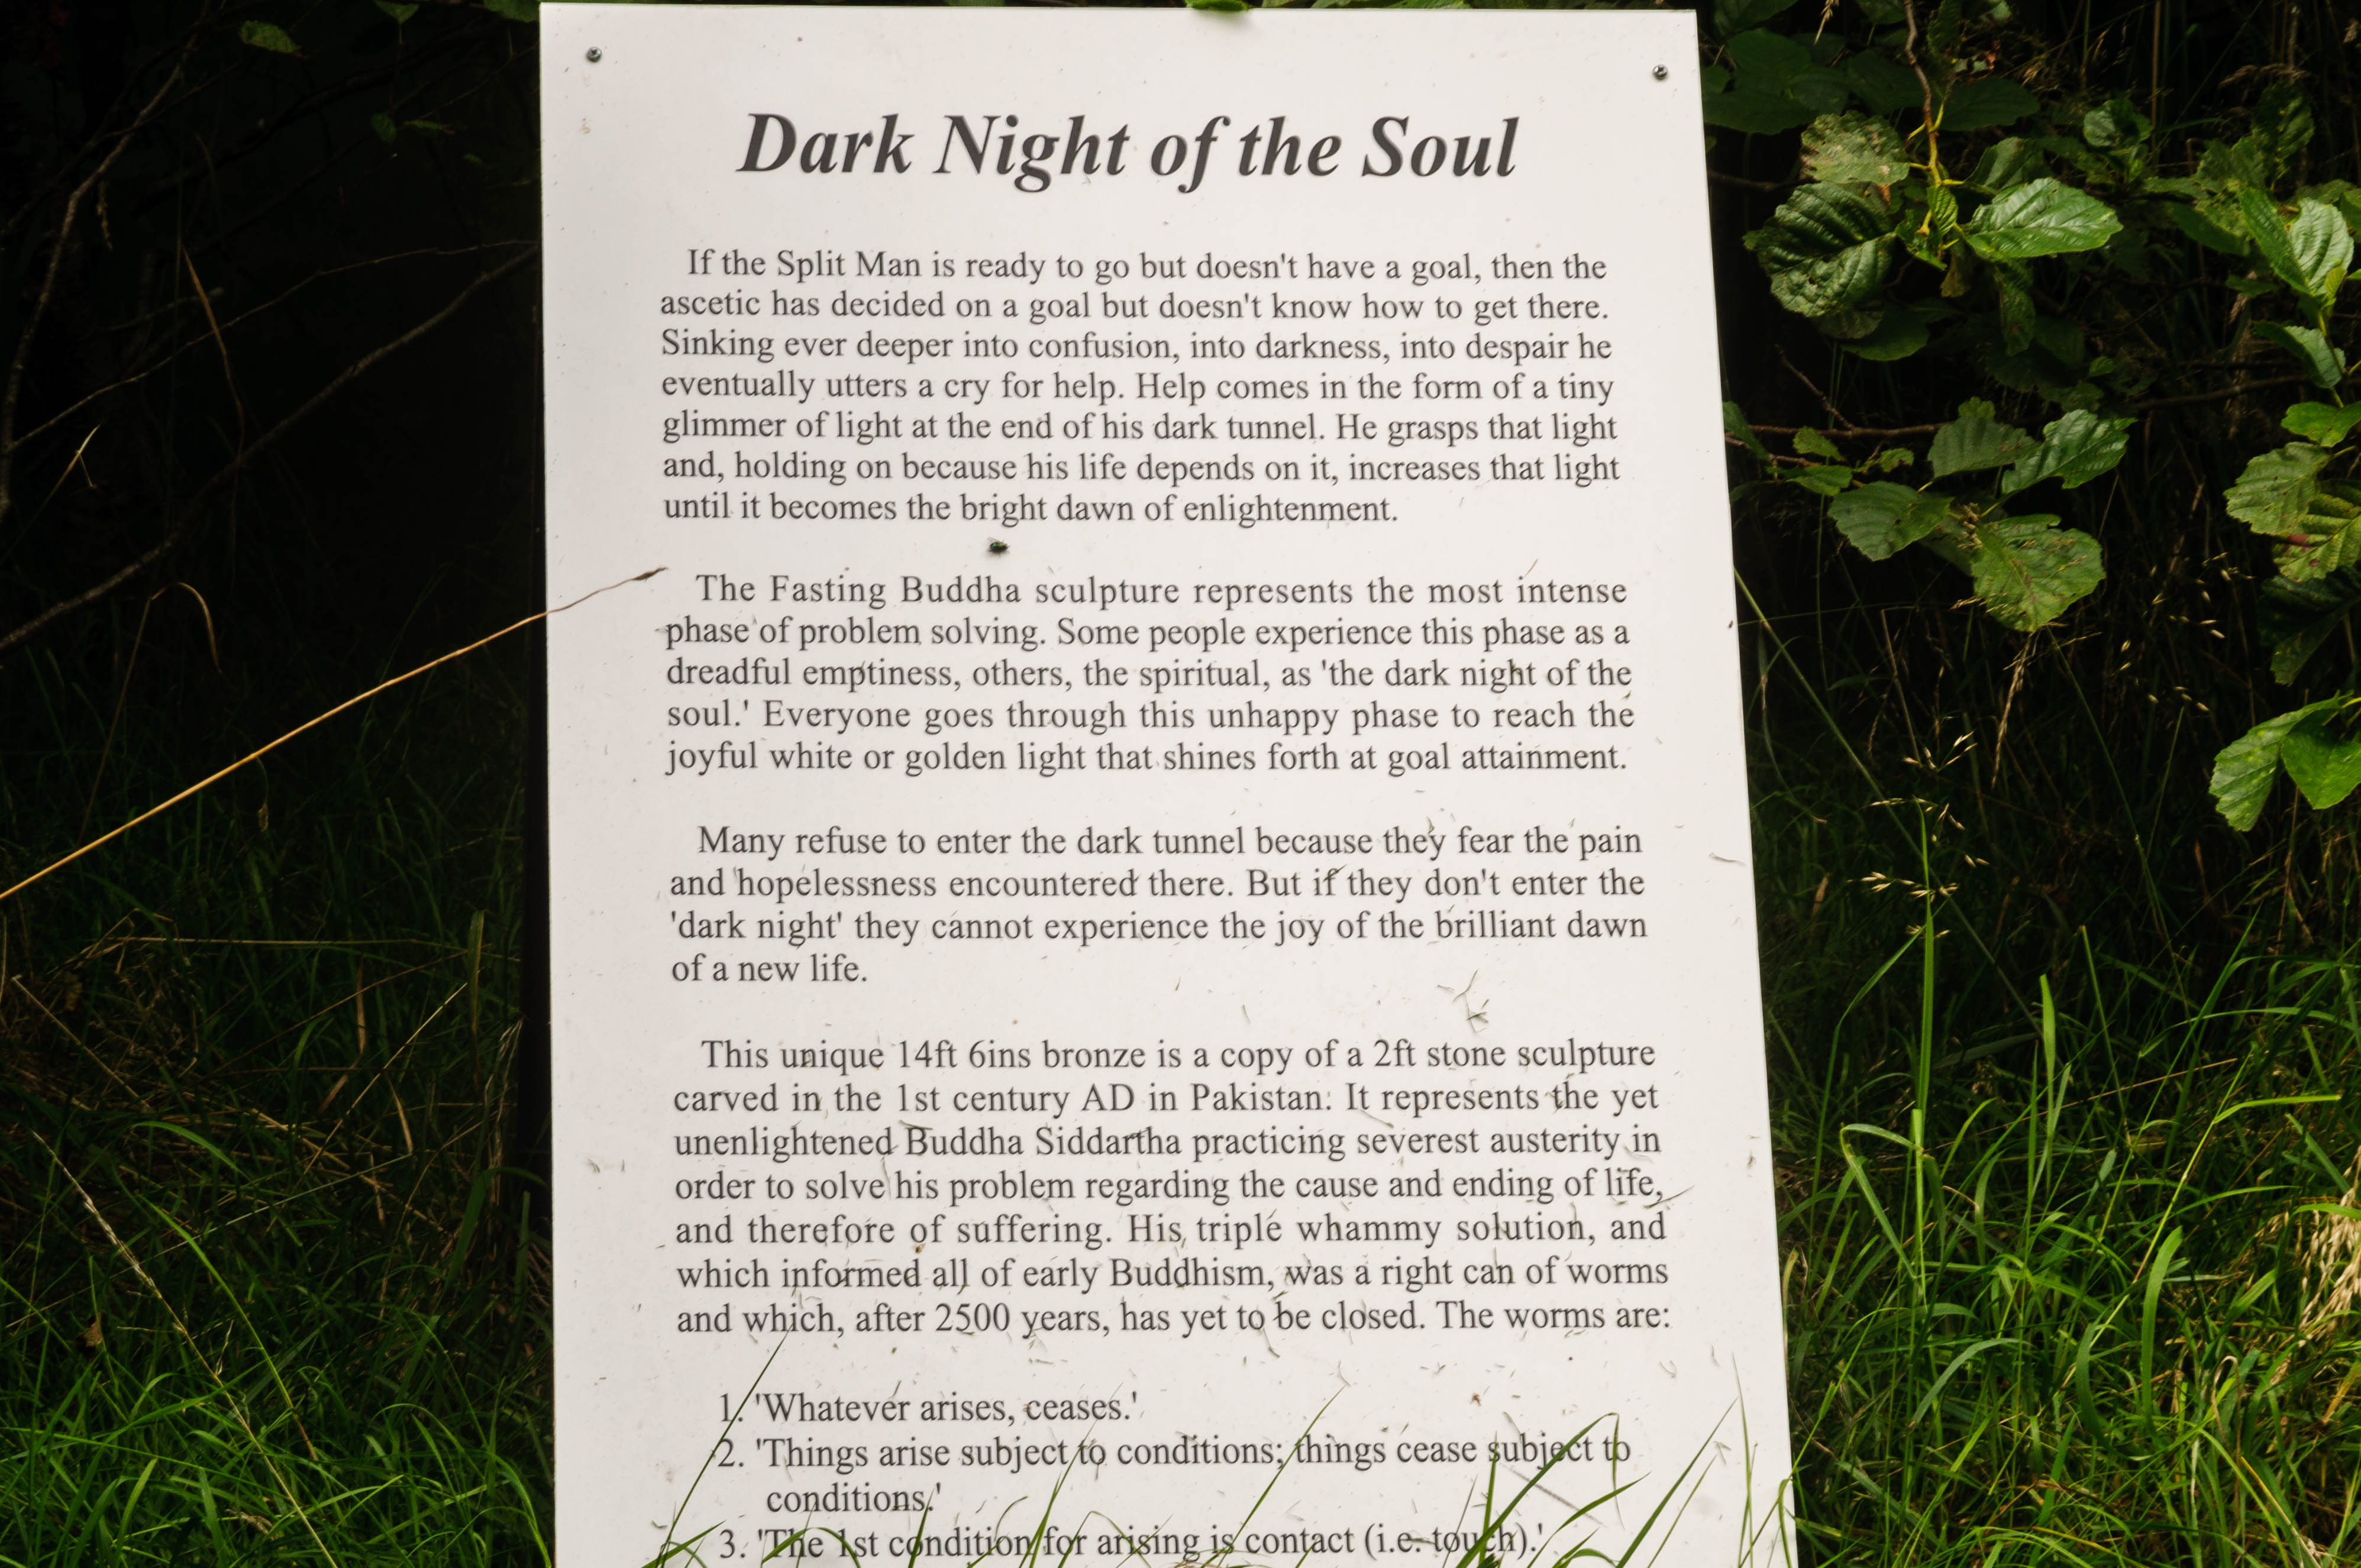 Dark Night of the Soul
If the Split Man is ready to go but doesn't have a goal, then the
ascetic has decided on a goal but doesn't know how to get there.
Sinking ever deeper into confusion, into darkness, into despair he
eventually utters a cry for help. Help comes in the form of a tiny
glimmer of light at the end of his dark tunnel. He grasps that light
and, holding on because his life depends on it, increases that light
until it becomes the bright dawn of enlightenment.
The Fasting Buddha sculpture represents the most intense
phase of problem solving. Some people experience this phase as a
dreadful emptiness, others, the spiritual, as 'the dark night of the
soul.' Everyone goes through this unhappy phase to reach the
joyful white or golden light that shines forth at goal attainment.
Many refuse to enter the dark tunnel because they fear the pain
and hopelessness encountered there. But if they don't enter the
'dark night' they cannot experience the joy of the brilliant dawn
of a new life.
This unique 14ft 6ins bronze is a copy of a 2ft stone sculpture
carved in the 1st century AD in Pakistan. It represents the yet
unenlightened Buddha Siddartha practicing severest austerity in
order to solve his problem regarding the cause and ending of life,
and therefore of suffering. His triple whammy solution, and
which informed all of early Buddhism, was a right can of worms
and which, after 2500 years, has yet to be closed. The worms are:
1. 'Whatever arises, ceases.'
2. 'Things arise subject to conditions; things cease subject to
conditions.'
3. 'The 1st condition for arising is contact (i.e. touch).'